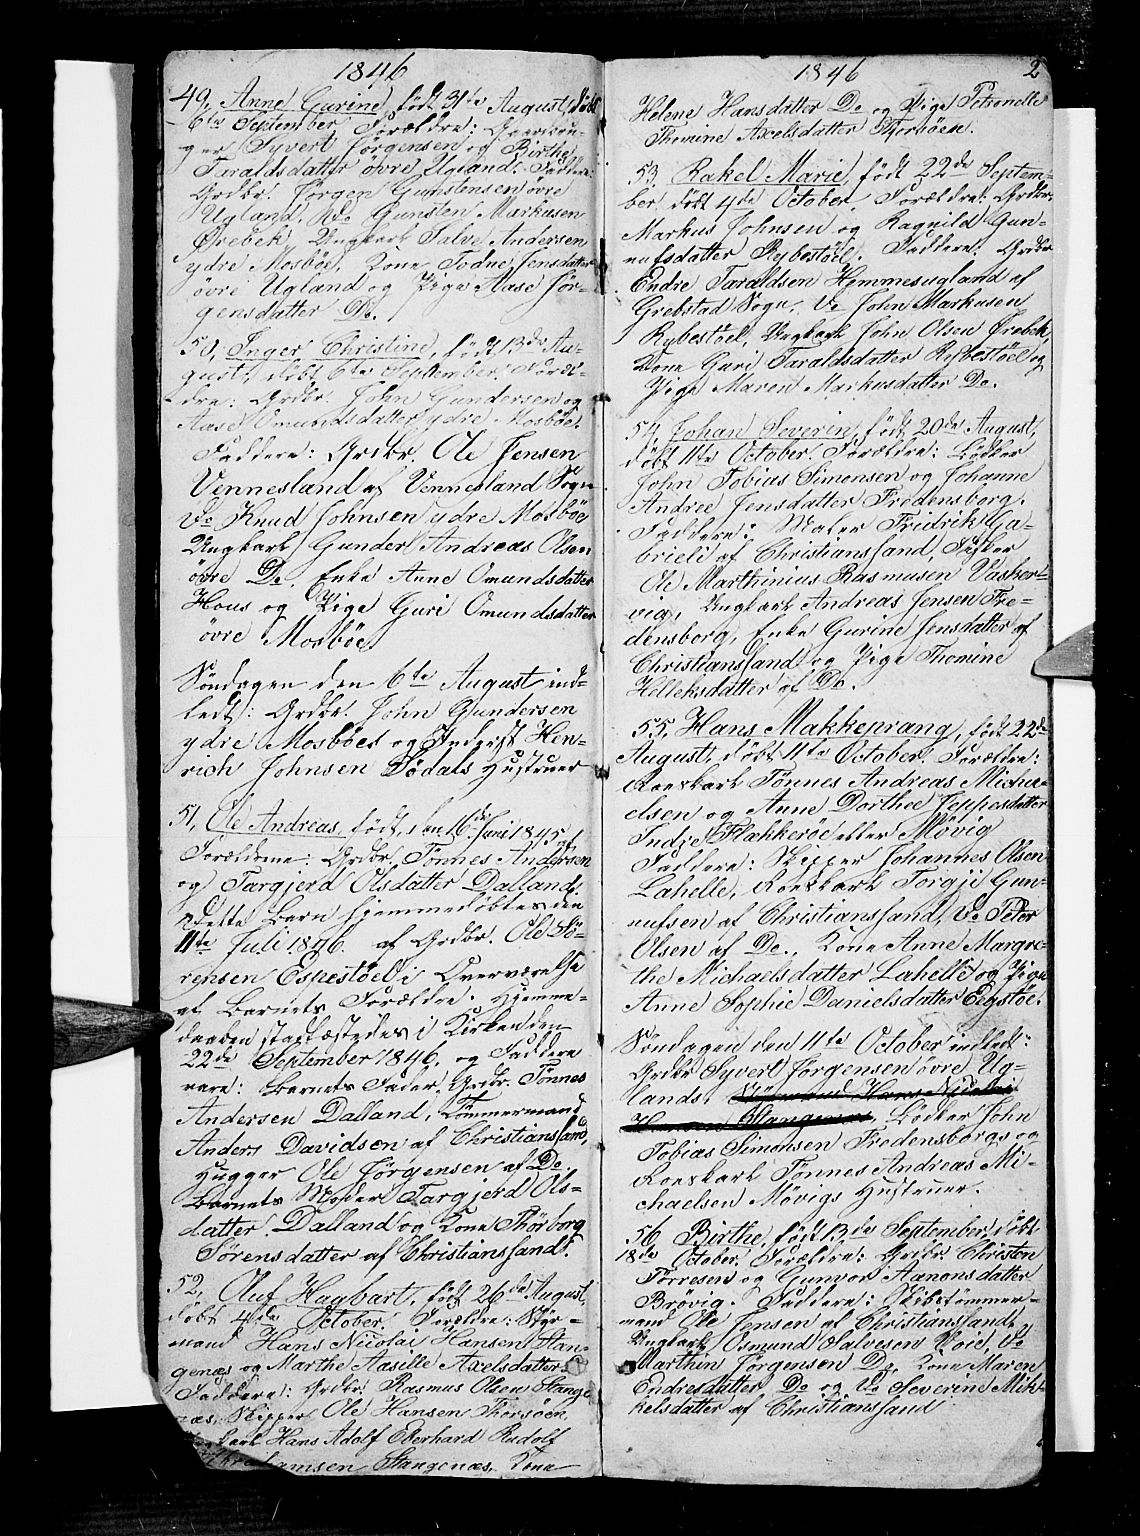 1846
49, Anne Gurine, født 31te August, døbt
6te September. Forældre: Gaardbru-
ger Syvert Jørgensen og Birthe
Taraldsdatter øvre Ugland. Faddere:
Grdbr. Jørgen Gunstensen øvre
Ugland, Do Gunsten Markusen
Ørebek, Ungkarl Salve Andersen
ydre Mosbøe, Kone Todne Jensdatter
øvre Ugland og Pige Aase Jør-
gensdatter Do.
50, Inger Christine, født 13de Au-
gust, døbt 6te September. Foræl-
dre: Grdbr. John Gundersen og
Aase Omundsdatter ydre Mosbøe.
Faddere: Grdbr. Ole Jensen
Vennesland af Vennesland Sogn
Do Knud Johnsen ydre Mosbøe
Ungkarl Gunder Andreas Olsen
øvre Do, Enke Anne Omundsdatter
Hous og Pige Guri Omundsdatter
øvre Mosbøe
Søndagen den 6te August ind-
ledt: Grdbr. John Gundersen
ydre Mosbøes og Inderst Hen-
rich Johnsen Sødals Hustruer
51, Ole Andreas, født den 16de Juni 1845 af
Forældrene: Grdbr. Tønnes Andersen
og Targjerd Olsdatter Dalland.
Dette Barn hjemmedøbtes den
11te Juli 1846 af Grdbr. Ole Sø-
rensen Espestøel i Overværelse
af Barnets Forældre. Hjemme-
daaben stadfæstedes i Kirken den
22de September 1846, og Faddere
vare: Barnets Fader, Grdbr. Tønnes
Andersen Dalland, Tømmermand
Anders Davidsen af Christianssand,
Hugger Ole Jørgensen af Do.
Barnets Moder Targjerd Ols-
datter Dalland og Kone Thorborg
Sørensdatter af Christianssand.
52, Oluf Hagbart, født 26de August,
døbt 4de October. Forældre: Styr-
mand Hans Nicolai Hansen Stan-
genæs og Marthe Aasille Axelsdatter
Faddere: Grdbr. Rasmus Olsen Stange
næs, Skipper Ole Hansen Thorsøen,
Hans Adolf Eberhard Rudolf
Stangenæs, Kone
1846 2
Helene Hansdatter Do og Pige Petronelle
Thomine Axelsdatter Thorsøen.
53, Rakel Marie, født 22de Septem-
ber døbt 4de October. Forældre: Grdbr.
Markus Johnsen og Ragnild Gun-
nufsdatter Rybestøel. Faddere: Grdbr
Endre Taraldsen Hemmesugland af
Grebstad Sogn, Do John Markusen
Rybestøel, Ungkarl John Olsen Ørebek,
Kone Guri Taraldsdatter Rysbestøel og
Pige Maren Markusdatter Do.
54, Johan Severin, født 20de August,
døbt 11te October. Forældre: Bødker
John Tobias Simonsen og Johanne
Andree Jensdatter Fredensborg.
Faddere: Maler Fridrik Ga-
brieli af Christianssand, Fisker
Ole Marthinius Rasmusen Vasker-
vig, Ungkarl Andreas Jensen Fre-
densborg, Enke Gurine Jensdatter af
Christianssand og Pige Thomine
Helleksdatter af Do.
55, Hans Makkeprang, født 22de
August, døbt 11te October. Forældre:
Roeskarl Tønnes Andreas Micha-
elsen og Anne Dorthee Jeppesdatter
Indre Flakkerøe eller Møvig
Faddere: Skipper Johannes Olsen
Lahelle, Roeskarl Torgje Gun-
nufsen af Christianssand, Do Peter
Olsen af Do., Kone Anne Margre-
the Michaelsdatter Lahelle og Pige
Anne Sophie Danielsdatter Eegstøe.
Søndagen den 11te October indledt:
Grdbr Syvert Jørgensen øvre Ug-
lands, Styrmand Hans Nicolai
Hansen Stangenæs, Bødker John
Tobias Simonsen Fredensborgs og
Roeskarl Tønnes Andreas Mi-
chaelsen Møvigs Hustruer.
56, Birthe, født 13de September, døbt
18de October. Forældre: Grdbr. Christen
Tørresen og Gunvor Aanonsdatter
Brøvig. Faddere: Skibstømmer-
mand Ole Jensen af Christianssand,
Ungkarl Osmund Salvesen Voie, Do
Marthin Jørgensen Do, Kone Maren
Endresdatter Do og Do Severine Mik-
kelsdatter af Christianssand